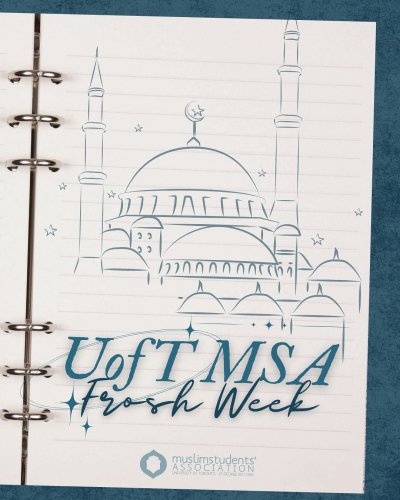 UofT MSA
Frosh Week
muslimstudents'
ASSOCIATION
UNIVERSITY OF TORONTO - ST.GEORGE